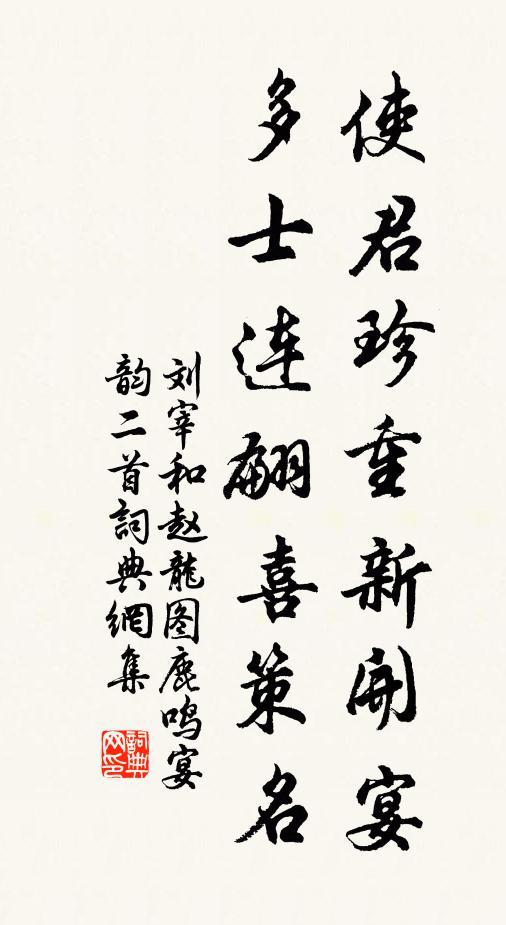 使君珍重新開宴
多士連翩喜策名
刘宰和赵龍图鹿鸣宴
韵二首詞典網集
詞典网印